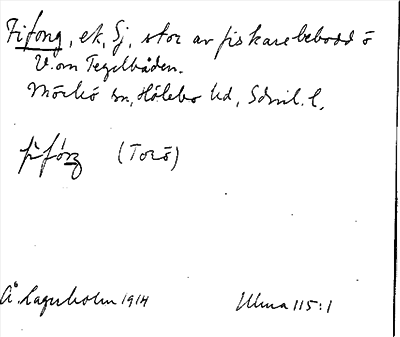 Fifong, ek, Sj, stor av fiskare bebodd ö
V. om Tegelbåden.
Mörkö sn, Hölebo hd, Sdml. l,
(Torö)
Å. Lagerholm 1914 Ulma 115:1